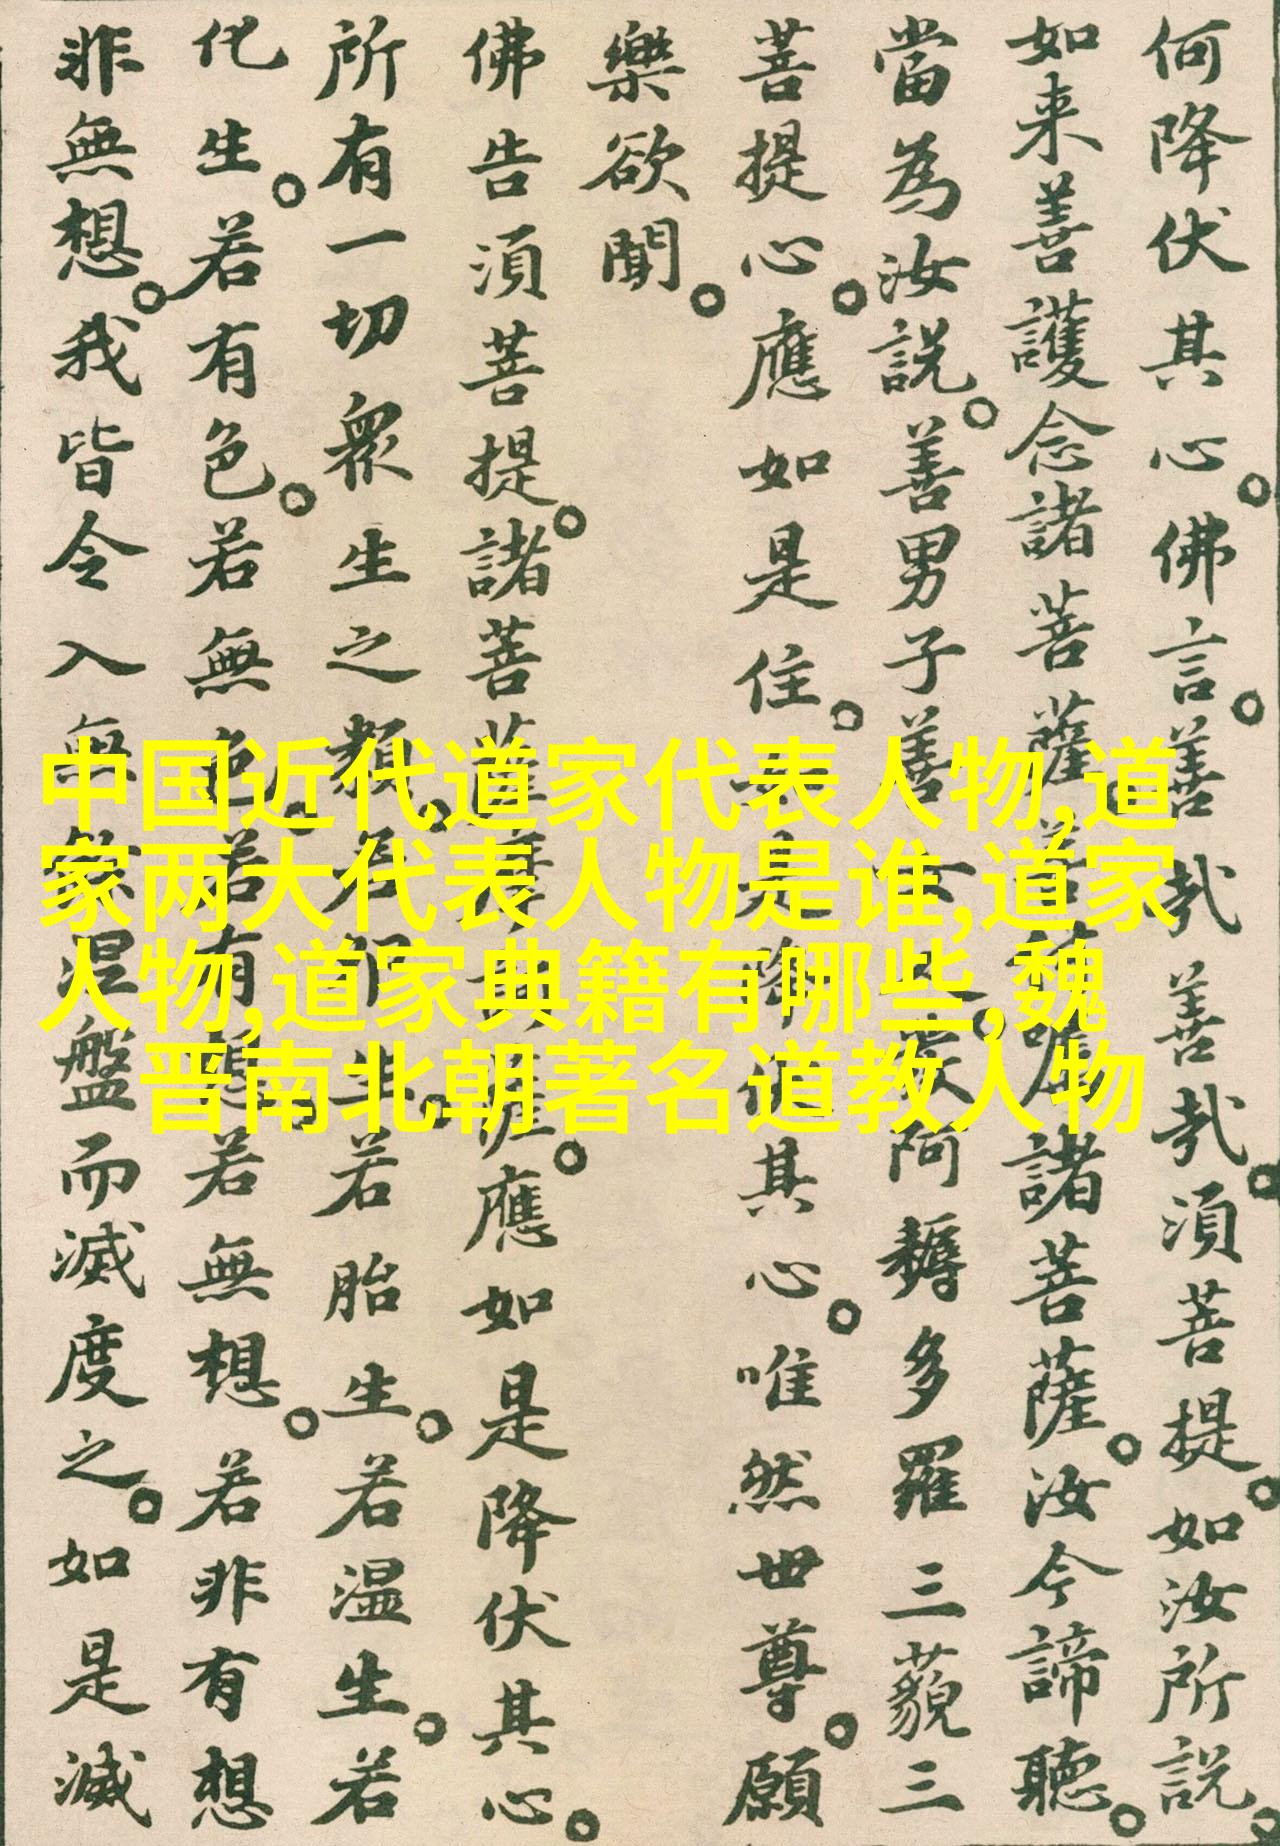 何降伏其心。佛言。善哉善哉。須菩提。如汝所説。
如来善護念諸菩薩。善嘱諸菩薩。汝今諦聽。
當為汝説。善男子善阿耨多羅三藐三
菩提心。應如是住。是降伏其心。唯然世尊。願
樂欲聞。
佛告須菩提。諸菩薩應如是降伏其心。
所有一切衆生之類。若生。若胎生。若温生。若
化生。若有色。若無色。若有想。若無想。若非有想
非無想。我皆令入無涅盤而滅度之。如是滅
中国近代道家代表人物,道
家两大代表人物是谁,道家
人物,道家典籍有哪些,魏
晋南北朝著名道教人物